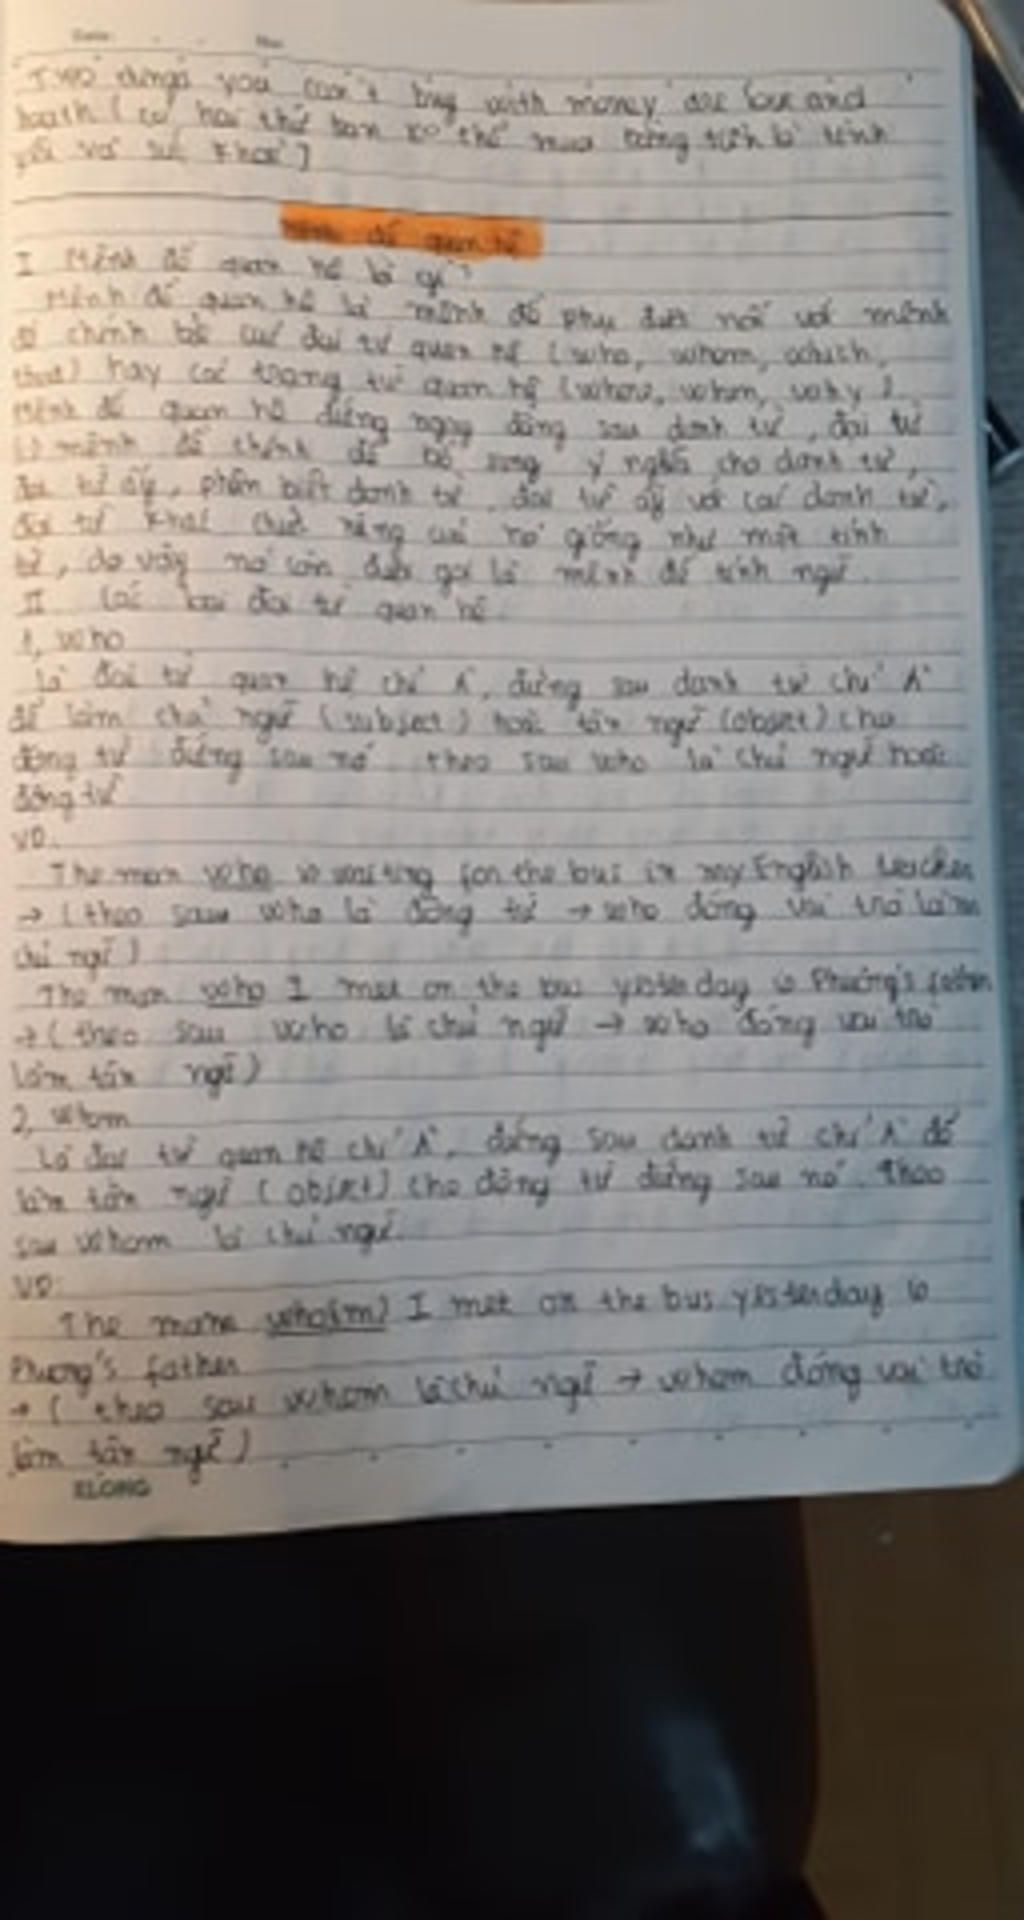 Date . . No.
Two things you can't buy with money are love and
heath ( có hai thứ bạn ko thể mua bằng tiền là tình
yêu và sức khoẻ )
Mệnh đề quan hệ
I Mệnh đề quan hệ là gì?
Mệnh đề quan hệ là mệnh đề phụ được nối với mệnh
đề chính bởi các đại từ quan hệ (who, whom, which,
that) hay các trạng từ quan hệ (where, when, why).
Mệnh đề quan hệ đứng ngay đằng sau danh từ, đại từ
mệnh đề chính để bổ sung ý nghĩa cho danh từ,
đại từ ấy, phân biệt danh từ, đại từ ấy với các danh từ,
đại từ khác chức năng của nó giống như một tính
từ, do vậy nó còn được gọi là mệnh đề tính ngữ.
II Các loại đại từ quan hệ
1, who
là đại từ quan hệ chỉ, đứng sau danh từ chỉ
để làm chủ ngữ (subject) hoặc tân ngữ (object) cho
động từ đứng sau nó. theo sau who là chủ ngữ hoặc
động từ
VD:
The man who is waiting for the bus is my English teacher
→ (theo sau who là động từ → who đóng vai trò làm
chủ ngữ)
The man who I met on the bus yesterday is Phương's father
→ (theo sau who là chủ ngữ → who đóng vai trò
làm tân ngữ)
2, whom
Là đại từ quan hệ chỉ, đứng sau danh từ chỉ để
làm tân ngữ (object) cho động từ đứng sau nó. Theo
sau whom là chủ ngữ.
VD:
The mane who(m) I met on the bus yesterday is
Phương's father
→ ( theo sau whom là chủ ngữ → whom đóng vai trò
làm tân ngữ)
KLONG